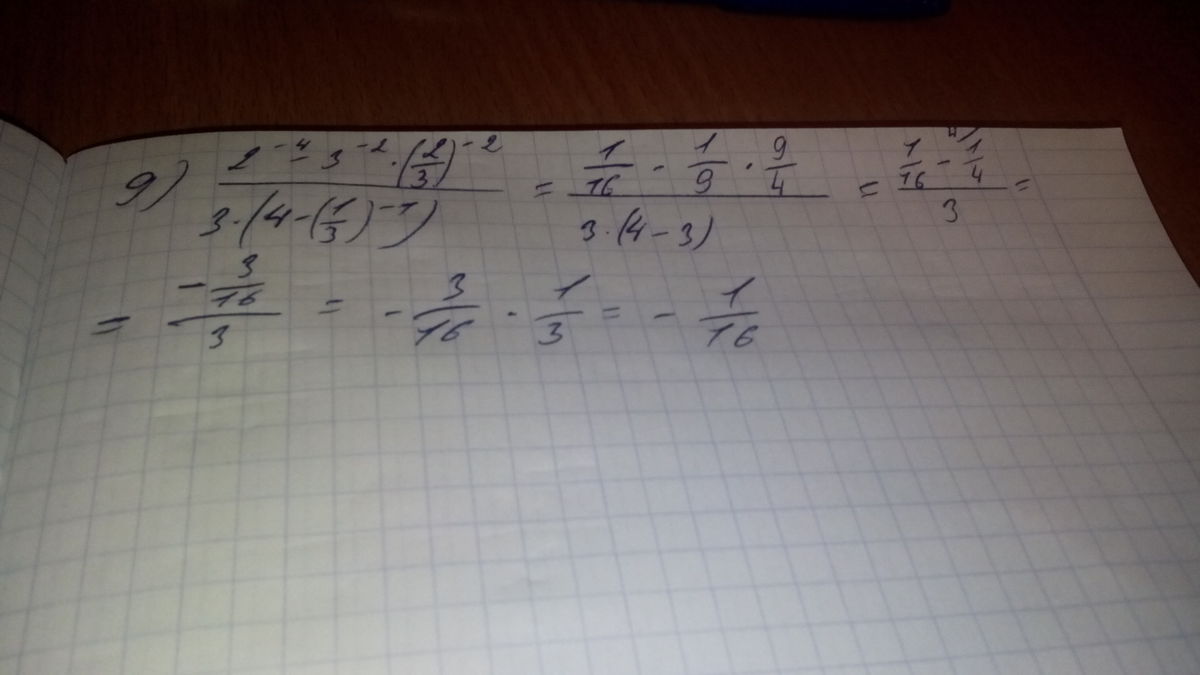 9) \frac{2^{-4} - 3^{-2} \cdot \left(\frac{2}{3}\right)^{-2}}{3 \cdot \left(4 - \left(\frac{1}{3}\right)^{-1}\right)} = \frac{\frac{1}{16} - \frac{1}{9} \cdot \frac{9}{4}}{3 \cdot (4 - 3)} = \frac{\frac{1}{16} - \frac{1}{4}^{4)}}{3} =
= \frac{-\frac{3}{16}}{3} = -\frac{3}{16} \cdot \frac{1}{3} = -\frac{1}{16}